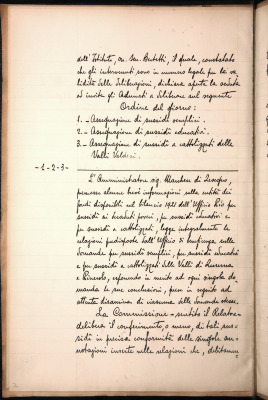 dell'Istituto, on. Sen. Badotti, il quale, constatato
che gli intervenuti sono in numero legale per la va-
lidità delle deliberazioni, dichiara aperta la seduta
ed invita gli Adunati a deliberare sul seguente
Ordine del giorno:
1. - Assegnazione di sussidi semplici.
2. - Assegnazione di sussidi educativi.
3. - Assegnazione di sussidi a cattolizzati delle
Valli Valdesi.
-1-2-3-
L'Amministratore sig. Marchesi di
premesse alcune brevi informazioni sulle entità dei
fondi disponibili nel bilancio 1921 dell'Ufficio Pio per
sussidi ai poveri, per sussidi educativi e
per sussidi a cattolizzati, legge integralmente le
relazioni predisposte dall'Ufficio di beneficenza sulle
domande per sussidi semplici, per sussidi educativi
e per sussidi a cattolizzati delle Valli di Luserna
e Pinerolo, riferendo in modo ad ogni singola do-
manda le sue conclusioni, prese in seguito ad
attenta disamina di ciascuna delle domande stesse.
La Commissione - sentito il Relatore -
delibera il conferimento, o meno, di tali sus-
sidi in precisa conformità delle singole an-
notazioni inserite nelle relazioni che, debitamen